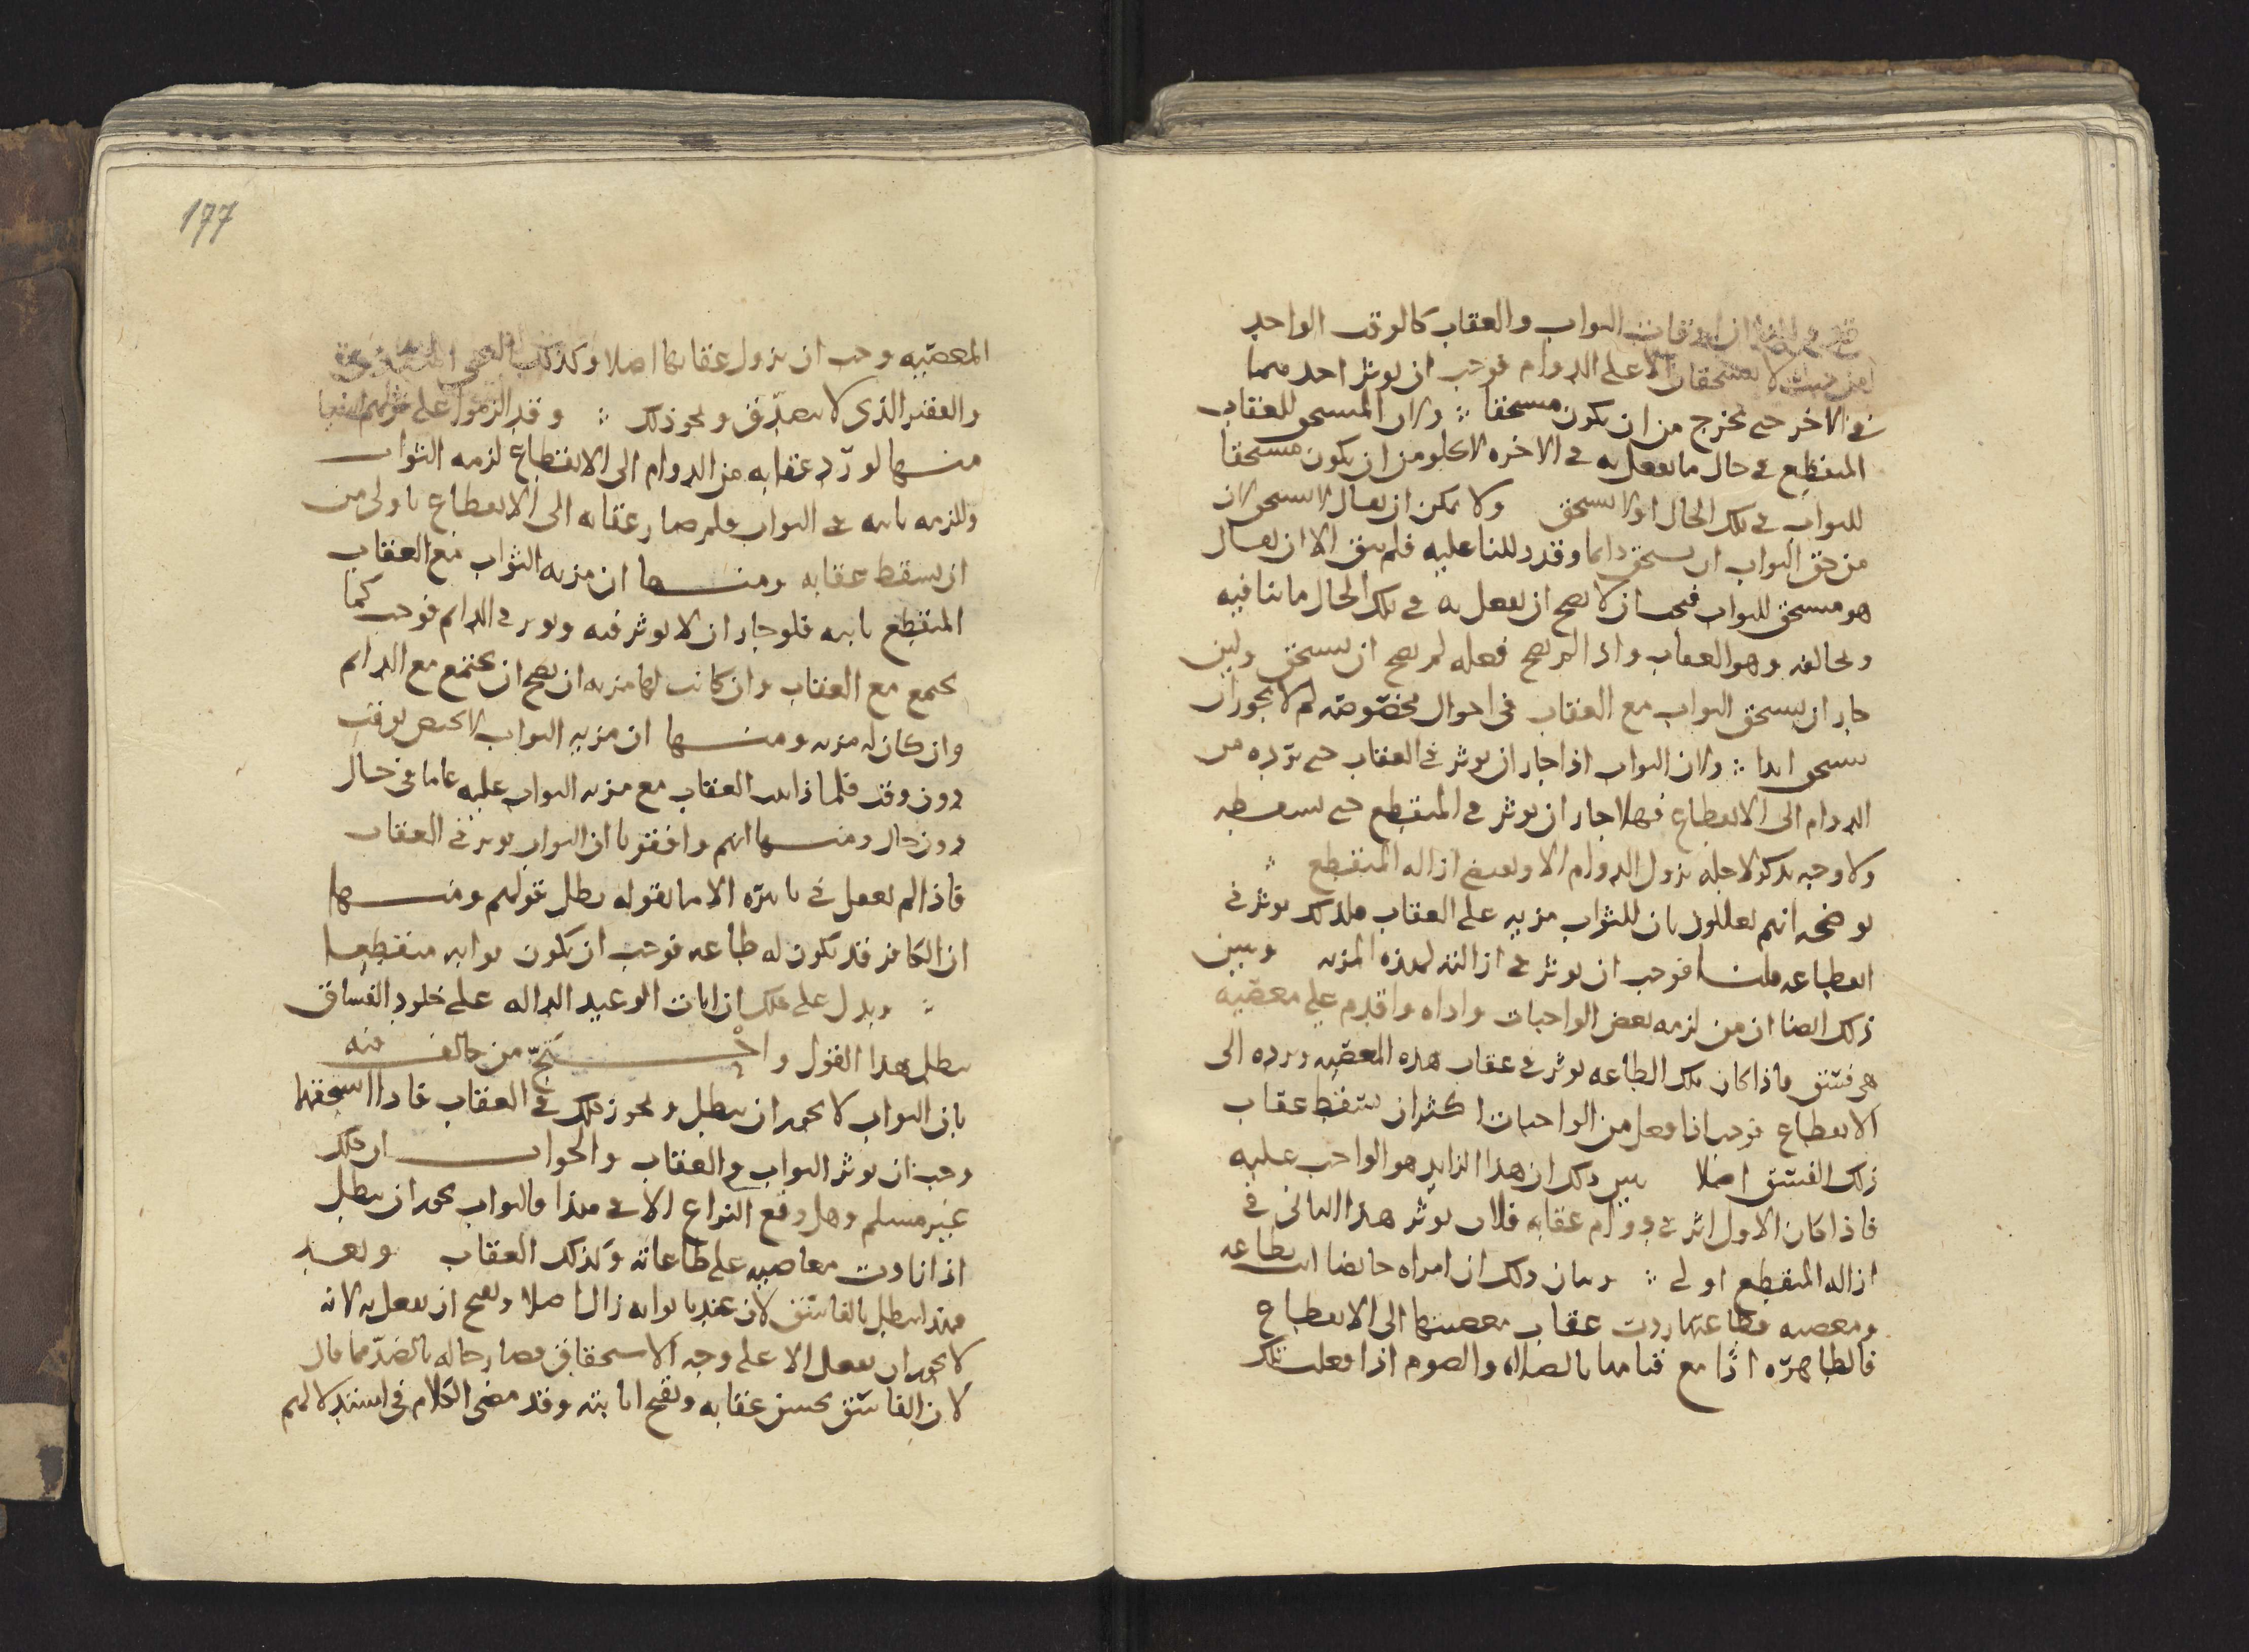 ان اوقات الثواب والعقاب كالوقت الواحد
لا يستحقان الا على الدوام فوجب ان يوثر احدهما
في الاخر حتى يخرج من ان يكون مستحقا ولان المستحق للعقاب
المنقطع في حال ما يفعل به في الاخره لا يخلو من ان يكون مستحقا
للثواب في تلك الحال او لا يستحق ولا يمكن ان يقال لا يستحق لان
من حق الثواب ان يستحق دايما وقد دللنا عليه فلم يبق الا ان يقال
هو مستحق للثواب فيجب ان لا يصح ان يفعل به في تلك الحال ما ينافيه
ويخالفه وهو العقاب واذا لم يصح فعله لم يصح ان يستحق ولين
جاز ان يستحق الثواب مع العقاب في احوال مخصوصه لم لا يجوز ان
يستحق ابدا ولان الثواب اذا جاز ان يوثر في العقاب حتى يرده من
الدوام الى الانقطاع فهلا جاز ان يوثر في المنقطع حتى يسقطه
ولا وجه يذكر لاجله يزول الدوام الا ويقتضي ازاله المنقطع
يوضحه انهم يعللون بان للثواب مزيه على العقاب فلذلك يوثر في
انقطاعه قلنا فوجب ان يوثر في ازالته لهذه المزيه ويبين
ذلك ايضا ان من لزمه بعض الواجبات واداه واقدم على معصيه
هي فسق فاذا كان تلك الطاعه يوثر في عقاب هذه المعصيه ويرده الى
الانقطاع فوجب اذا فعل من الواجبات اكثر ان يسقط عقاب
ذلك الفسق اصلا يبين ذلك ان هذا الزايد هو الواجب عليه
فاذا كان الاول اثر في دوام عقابه فلان يوثر هذا الثاني في
ازاله المنقطع اولى وبيان ذلك ان امراه حايضا اتت بطاعه
ومعصيه فطاعتها ردت عقاب معصيتها الى الانقطاع
فالطاهره اذا مع قيامها بالصلاه والصوم اذا فعلت تلك
177
المعصيه وجب ان يزول عقابها اصلا وكذلك
والفقير الذي لا يصدق ونحو ذلك وقد الزموا على قولهم اشيا
منها لو رد عقابه من الدوام الى الانقطاع لزمه الثواب
وللزمه تاثيره في الثواب فلم صار عقابه الى الانقطاع باولى من
ان يسقط عقابه ومنها ان مزيه الثواب مع العقاب
المنقطع ثابته فلو جاز ان لا يوثر فيه ويوثر في الدايم فوجب كما
يجتمع مع العقاب وان كانت لها مزيه ان يصح ان يجتمع مع الدايم
وان كان له مزيه ومنها ان مزيه الثواب لا تختص بوقت
دون وقت فلماذا العقاب مع مزيه الثواب عليه عاما في حال
دون حال ومنها انهم وافقونا ان الثواب يوثر في العقاب
فاذا لم يعقل في تاثيره الا ما نقوله بطل قولهم ومنها
ان الكافر قد يكون له طاعه فوجب ان يكون ثوابه منقطعا
ويدل على ذلك ان ايات الوعيد الداله على خلود الفساق
يبطل هذا القول واحتج من خالف فيه
بان الثواب لا يجوز ان يبطل ويجوز ذلك في العقاب فاذا استحقهما
وجب ان يوثر الثواب في العقاب والجواب ان ذلك
غير مسلم وهل وقع النزاع الا في هذا فالثواب يجوز ان يبطل
اذا زادت معاصيه على طاعاته وكذلك العقاب وبعد
فهذا يبطل بالفاسق لان عندنا ثوابه زال اصلا ويصح ان يفعل به لانه
لا يجوز ان يفعل الا على وجه الاستحقاق فصار حاله بالضد مما قال
لان الفاسق يحسن عقابه ويقبح اثابته وقد مضى الكلام في استدلالهم